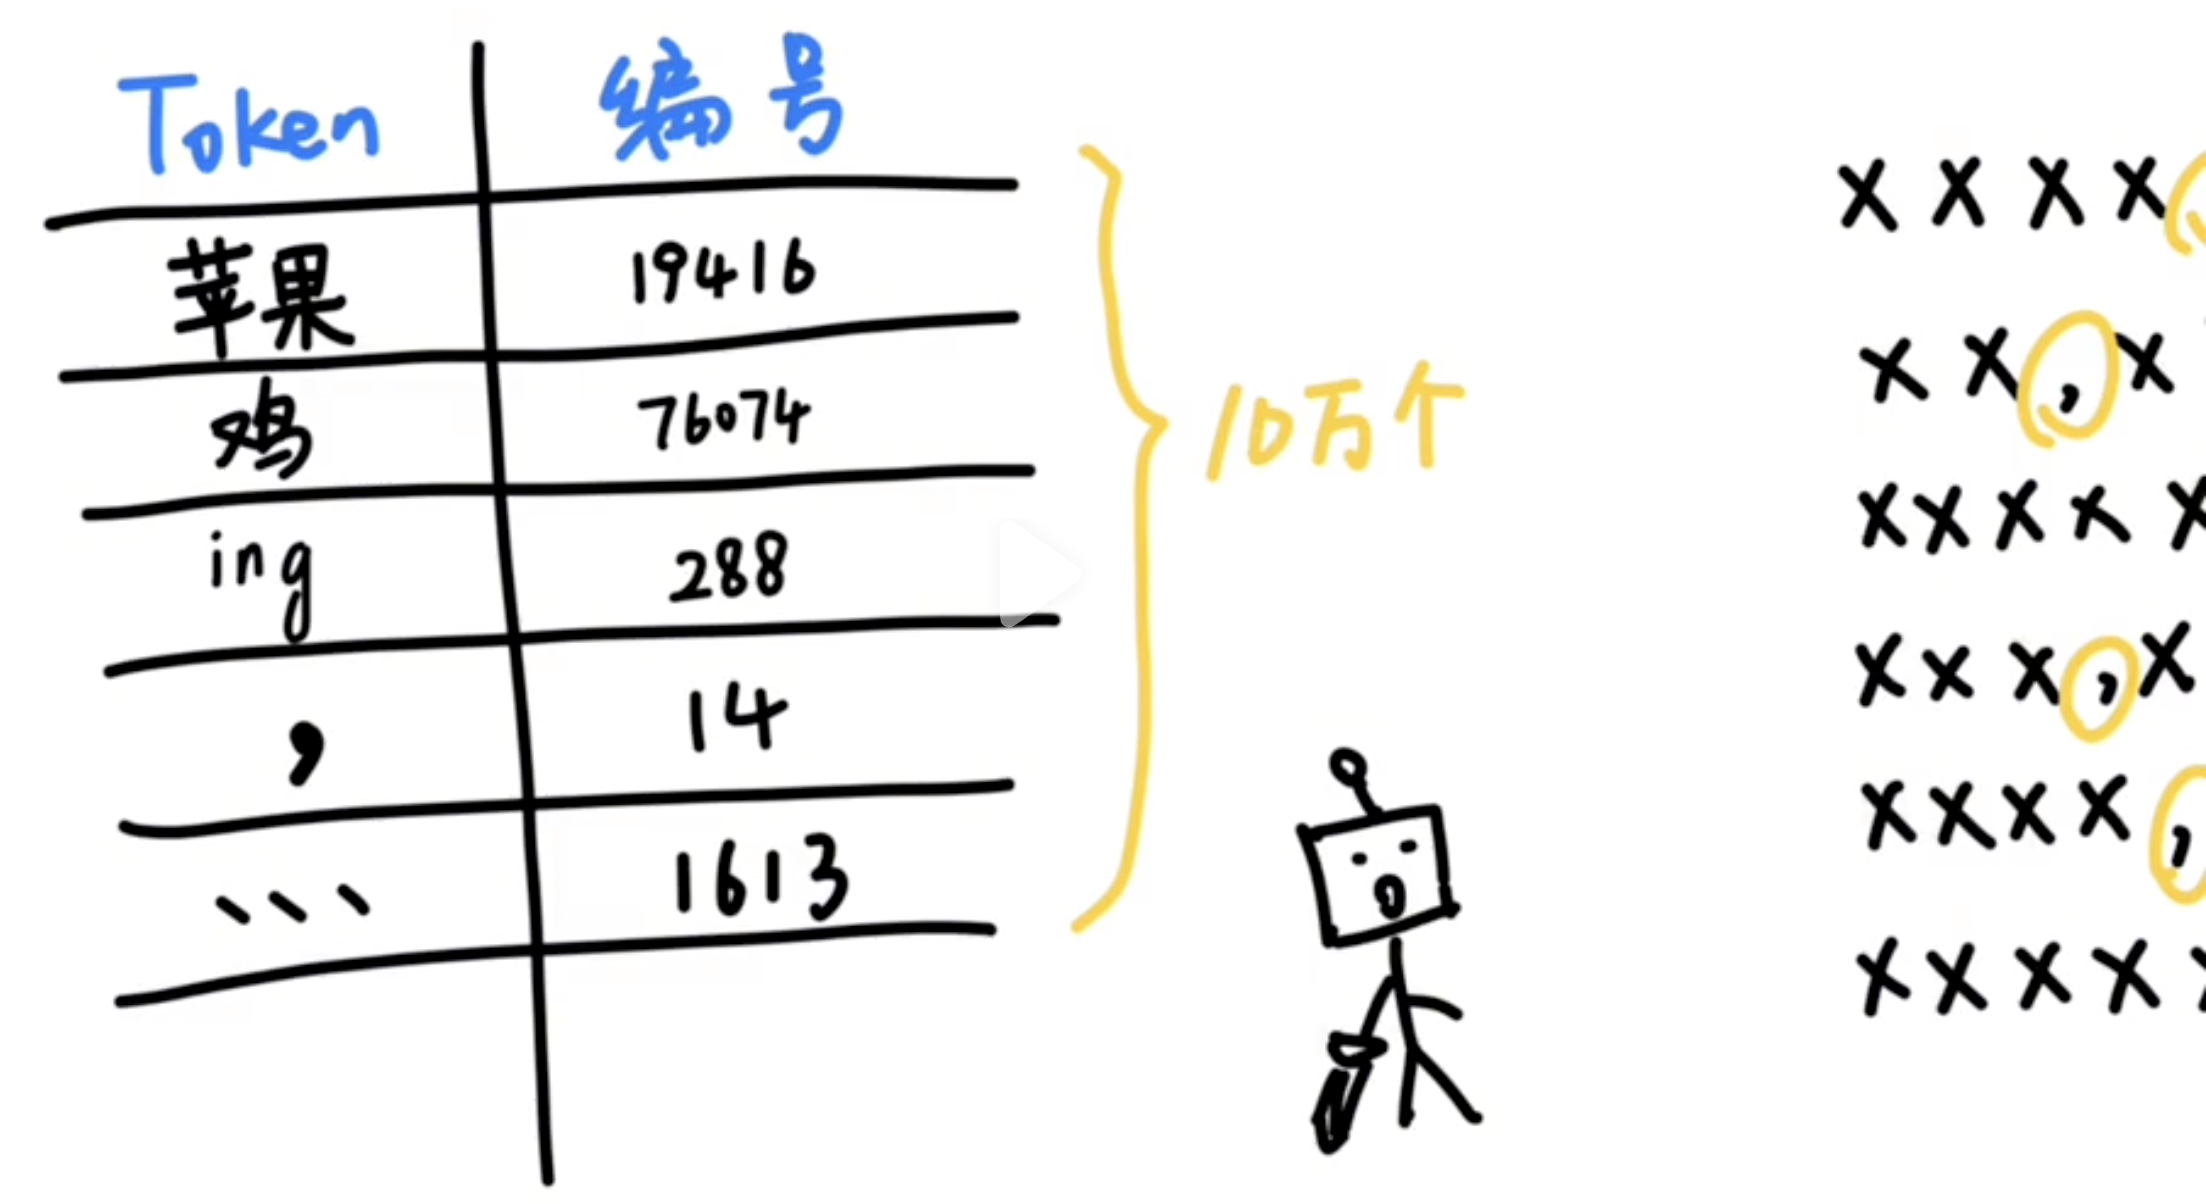 Token 编号
苹果 19416
鸡 76074
ing 288
, 14
、、、 1613
10万个
X X X X
X X , X
X X X X X
X X X , X
X X X X ,
X X X X